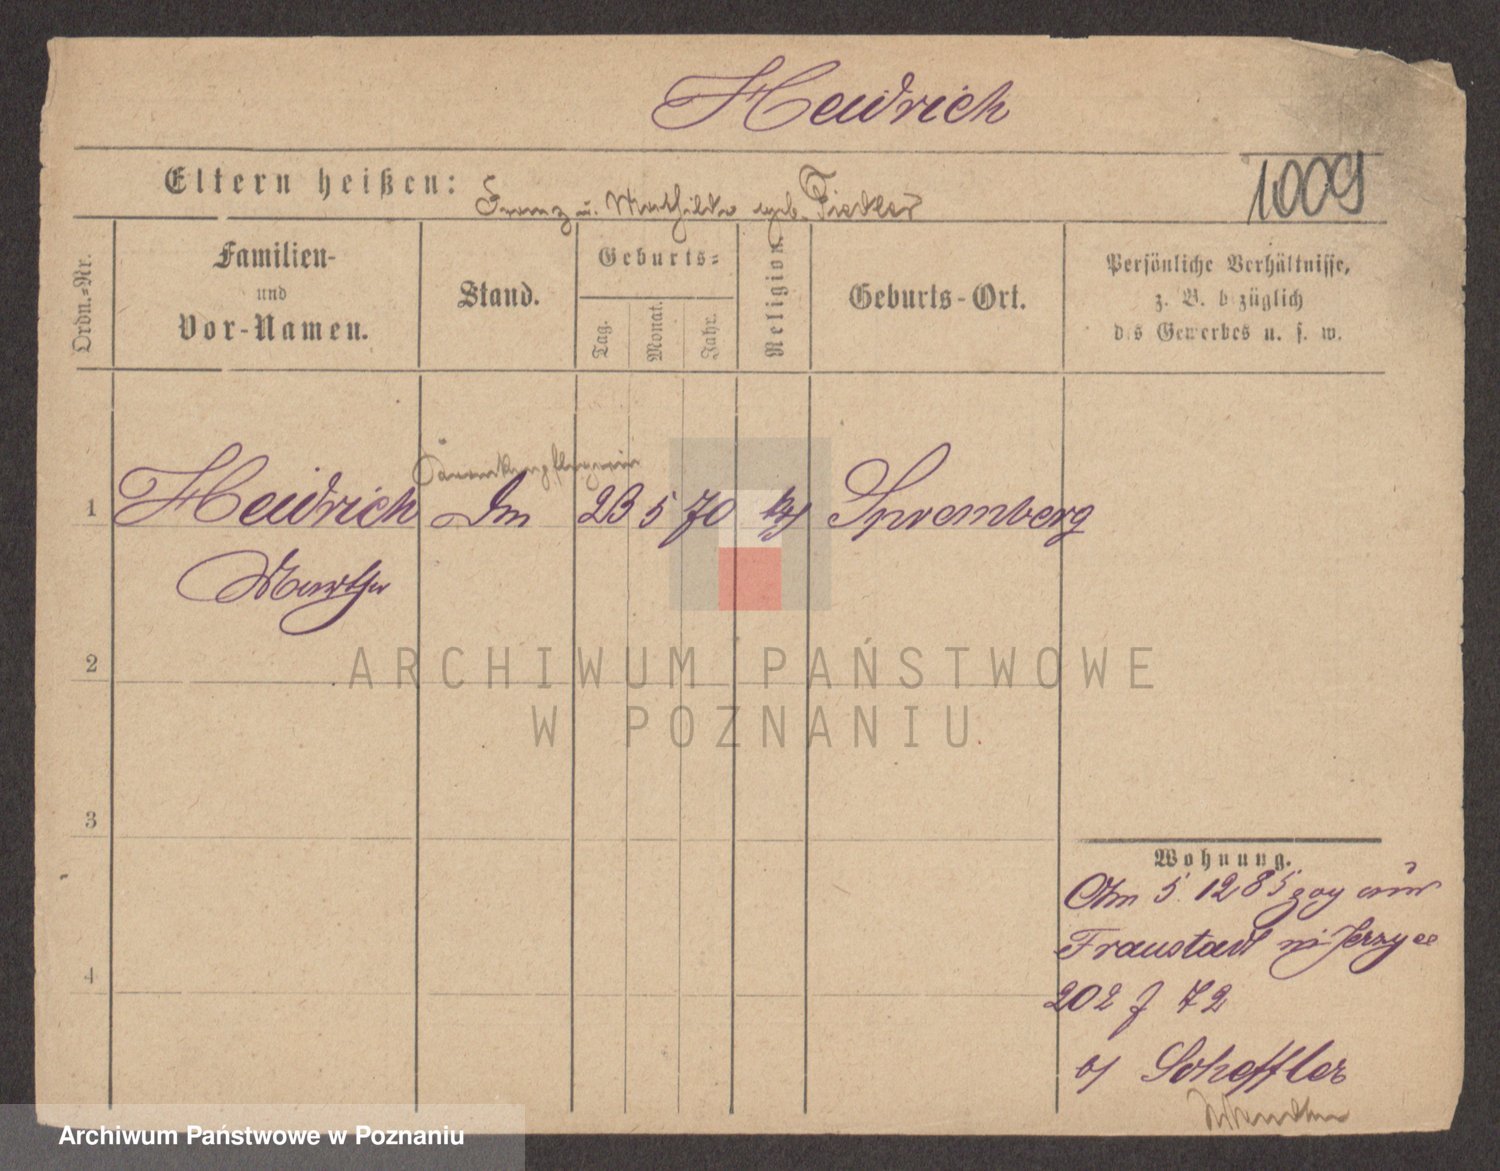 Heidrich
1009
Eltern heißen: Franz u. Mathilde geb. Fiedler
Ordn.-Nr.
Familien-
und
Vor-Namen.
Stand.
Geburts-
Tag.
Monat.
Jahr.
Religion
Geburts-Ort.
Persönliche Verhältnisse,
z. B. bezüglich
des Gewerbes u. s. w.
1 Heidrich 23 5 70 Spremberg
Martha
ARCHIWUM PAŃSTWOWE
W POZNANIU
2
3
4
Wohnung.
Am 5. 12 85 zog aus
Fraustadt n. Jerzyce
202 f 72
b/ Scheffler
Archiwum Państwowe w Poznaniu